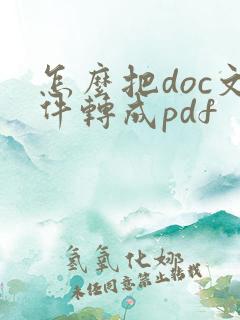 怎麼把doc文
件轉成pdf
氢氧化娜
未经同意禁止转载